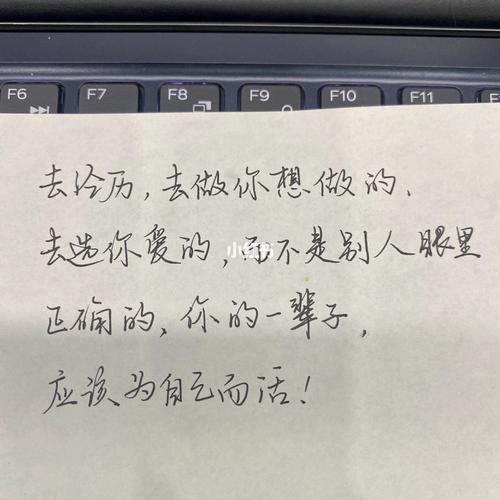 F6 F7 F8 F9 F10 F11
去经历,去做你想做的、
去选你爱的,而不是别人眼里
正确的、你的一辈子,
应该为自己而活!
小红书